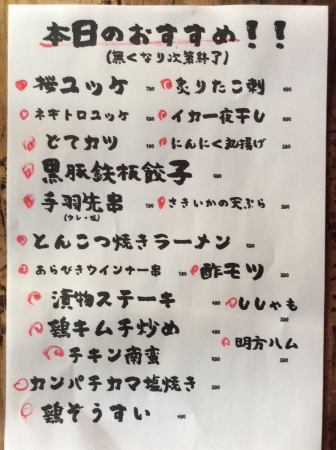 本日のおすすめ!!
(無くなり次第終了)
桜ユッケ 炙りたこ刺
ネギトロユッケ イカ一夜干し
どてカツ にんにく丸揚げ
黒豚鉄板餃子
手羽先串 さきいかの天ぷら
(タレ・塩)
とんこつ焼きラーメン
あらびきウインナー串 酢モツ
漬物ステーキ ししゃも
鶏キムチ炒め
明方ハム
チキン南蛮
カンパチカマ塩焼き
鶏ぞうすい